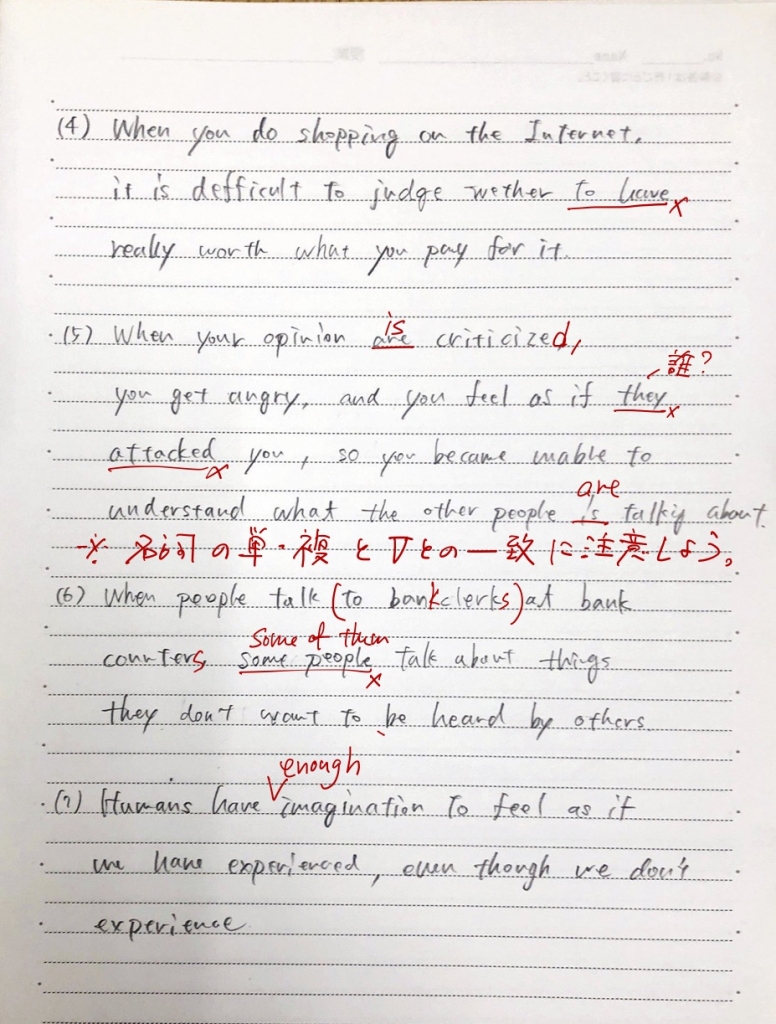 (4) When you do shopping on the Internet,
it is defficult to judge wether to leave ×
really worth what you pay for it.
is
(5) When your opinion are criticized,
誰?
you get angry, and you feel as if they ×
attacked × you, so you became unable to
are
understand what the other people is talkig about.
※ 名詞の単・複とVとの一致に注意しよう。
(6) When people talk (to bankclerks) at bank
Some of them
counters some people × talk about things
they don't want to be heard by others.
enough
(7) Humans have ∨ imagination to feel as if
we have experienced, even though we don't
experience